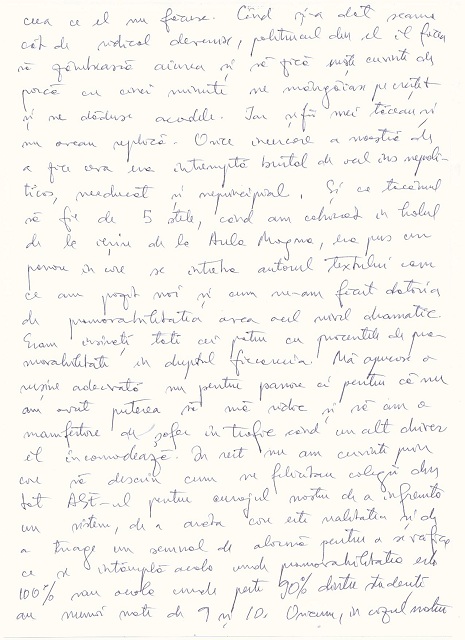 ceea ce el nu făcuse. Când și-a dat seama
cât de radical devenise, politrucul din el îl făcu
să zâmbească aiurea și să zică niște cuvinte de
parcă cu cinci minute ne mângâiase pe creștet
și ne dăduse acadele. Iar șefii mei tăceau și
nu aveau replică. Orice încercare a noastră de
a zice ceva era întreruptă brutal de acel ins nepoli-
ticos, needucat și neprincipial. Și ca tacâmul
să fie de 5 stele, când am coborât în holul
de la ieșire de la Aula Magna, era pus un
panou în care se întreba autorul textului cam
ce am pățit noi și cum ne-am făcut datoria
de promovabilitatea avea acel nivel dramatic.
Eram înșirați toți cei patru cu procentele de pro-
movabilitate în dreptul fiecăruia. Mă apucase o
rușine adevărată nu pentru panou ci pentru că nu
am avut puterea să mă ridic și să am o
manifestare de șofer în trafic când un alt driver
îl incomodează. În rest nu am cuvinte prin
care să descriu cum ne felicitau colegii din
tot ASE-ul pentru curajul nostru de a înfrunta
un sistem, de a arăta care este realitatea și de
a trage un semnal de alarmă pentru a se verifica
ce se întâmplă acolo unde promovabilitatea este
100% sau acolo unde peste 90% dintre studenți
au numai note de 9 și 10. Oricum, în cazul nostru